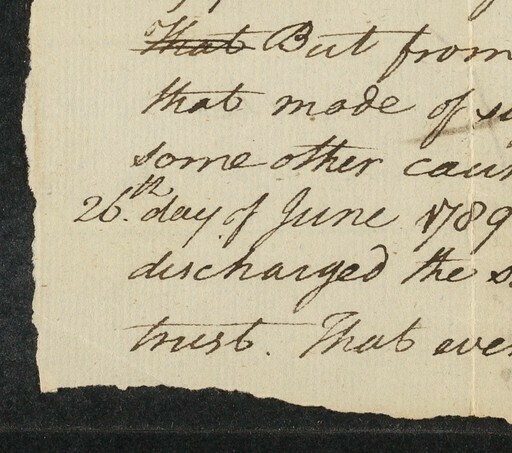 That But from
that mode of su
some other cau
26.th day of June 1789
discharged the s
trust. That ever